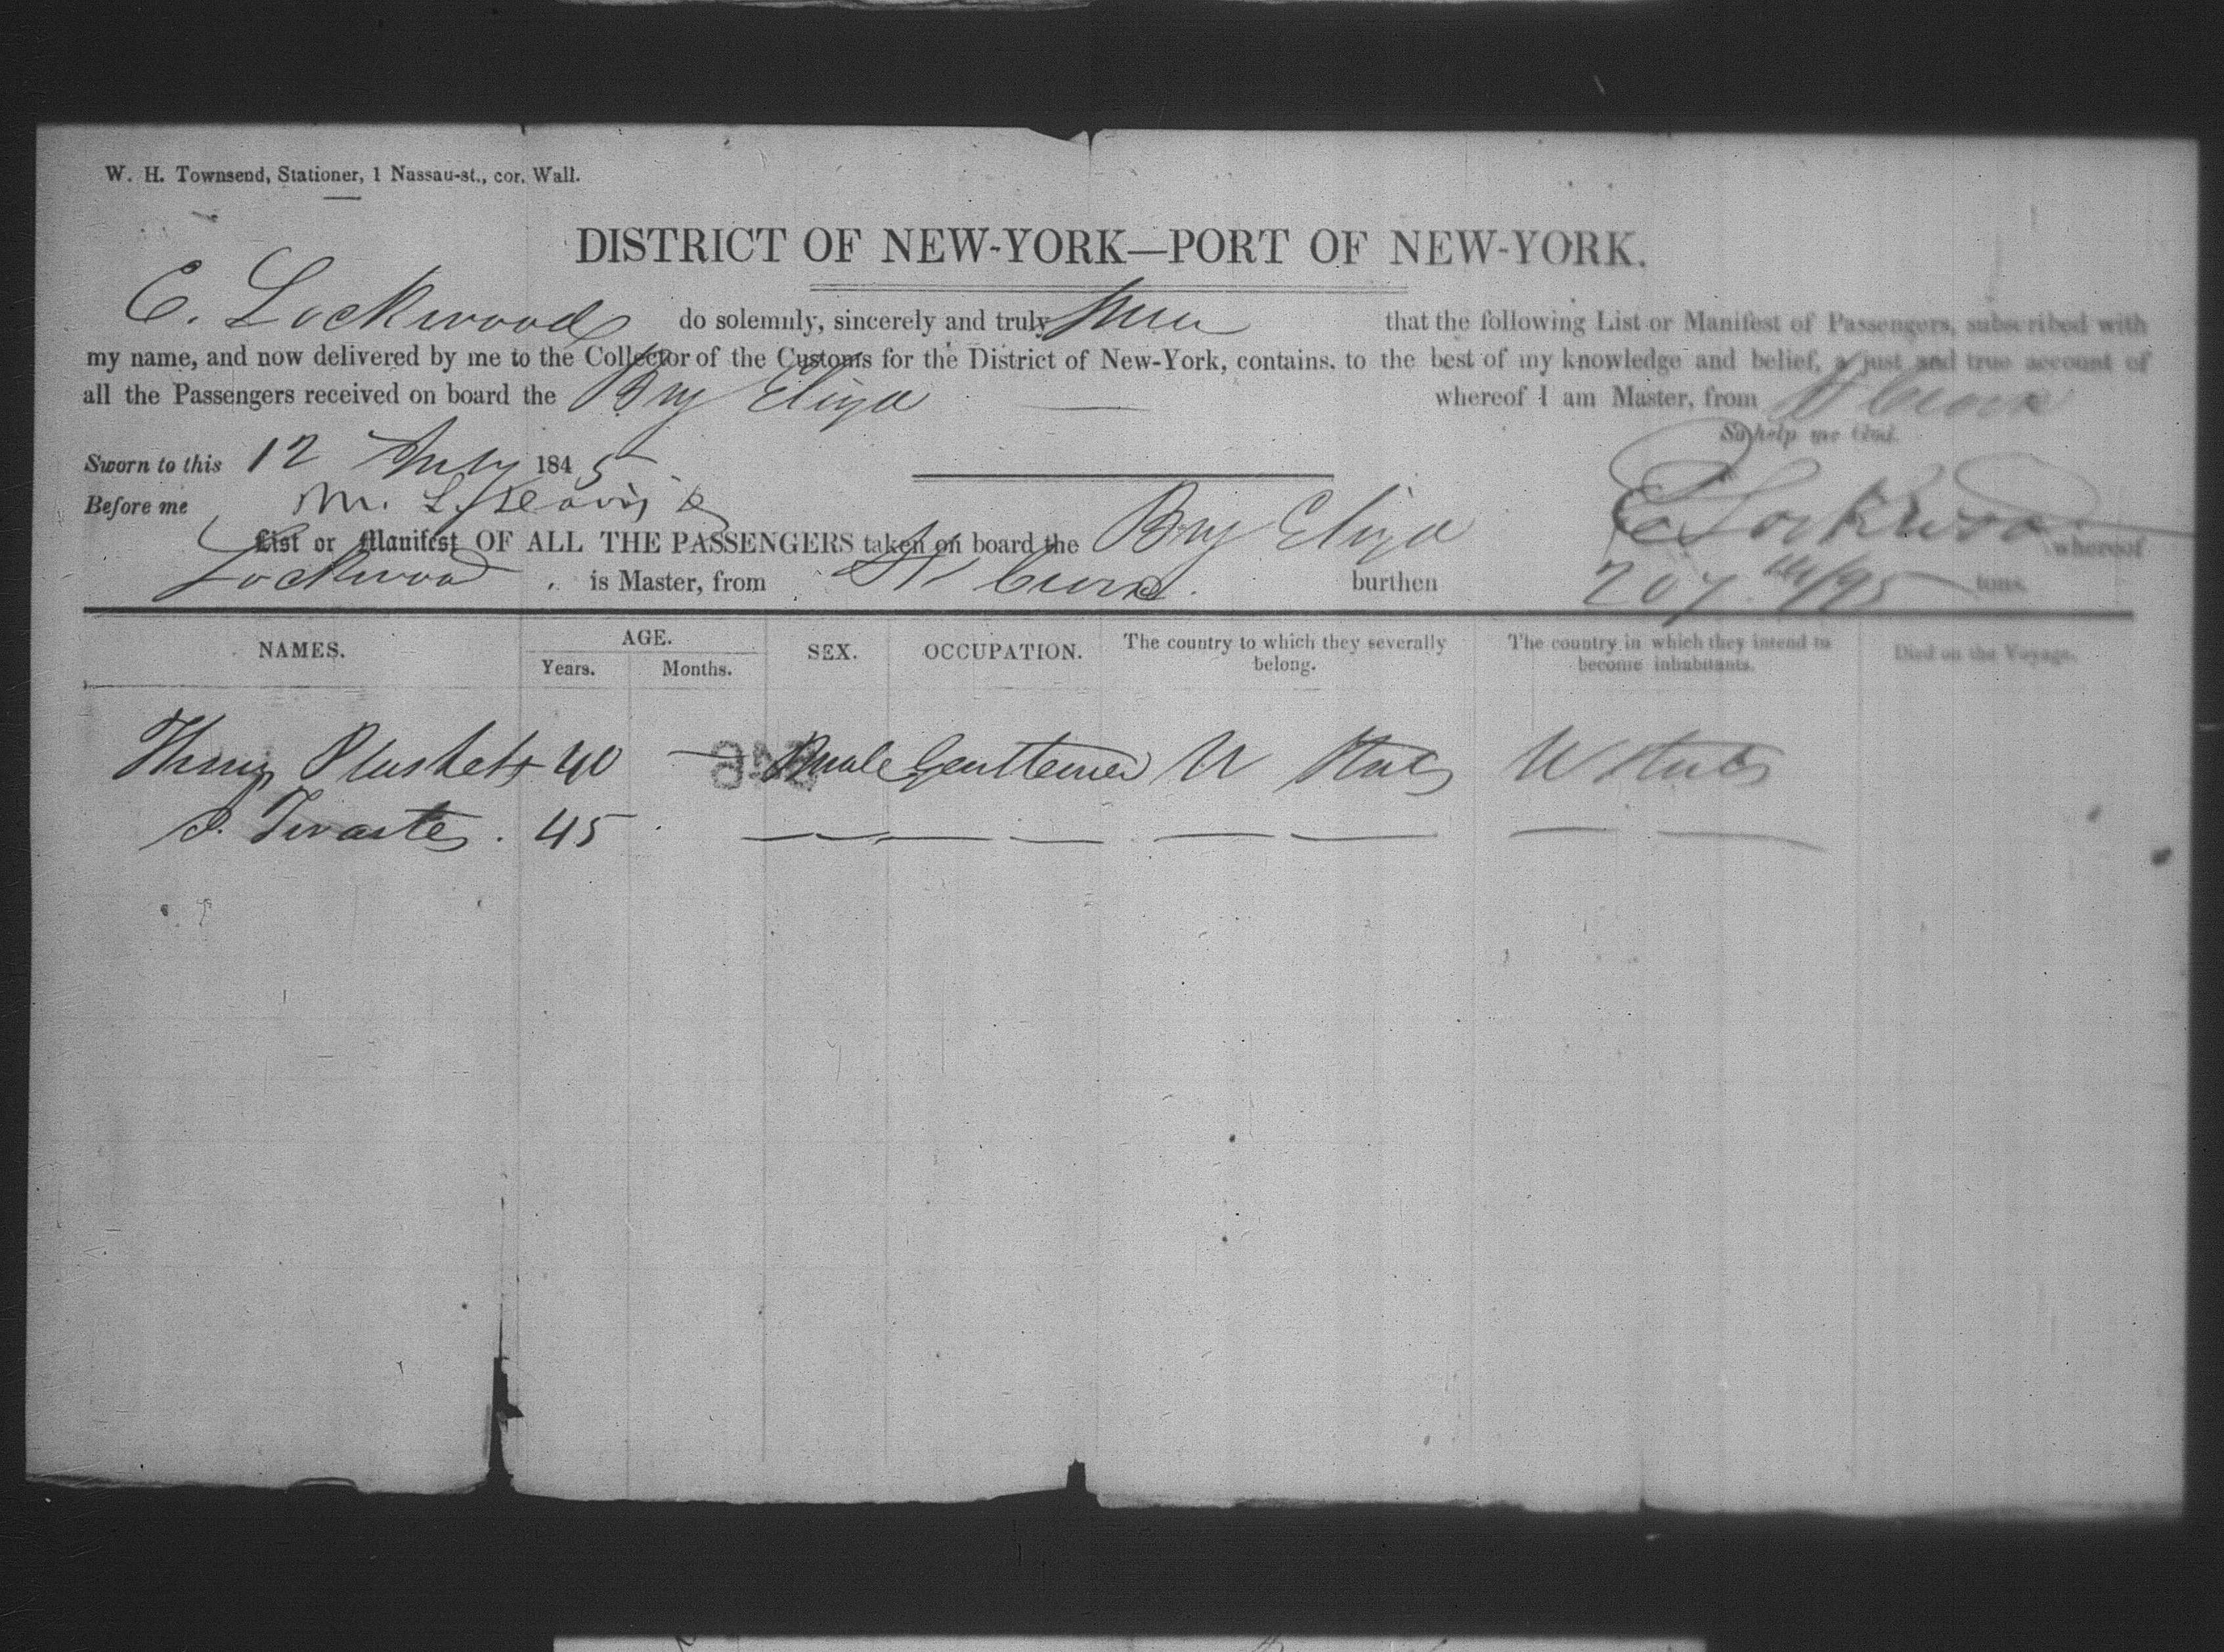 W. H. Townsend, Stationer, 1 Nassau-st., cor. Wall.
DISTRICT OF NEW-YORK—PORT OF NEW-YORK.
E. Lockwood do solemnly, sincerely and truly that the following List or Manifest of Passengers, subscribed with
my name, and now delivered by me to the Collector of the Customs for the District of New-York, contains, to the best of my knowledge and belief, a just and true account of
all the Passengers received on board the Brig Eliza whereof I am Master, from St Croix
So help me God.
Sworn to this 12 July 1845
E Lockwood
Before me M. L.
List or Manifest OF ALL THE PASSENGERS taken on board the Brig Eliza whereof
Lockwood is Master, from St Croix burthen 207 /95 tons
NAMES. AGE. SEX. OCCUPATION. The country to which they severally belong. The country in which they intend to become inhabitants. Died on the Voyage.
Years. Months.
40 — Male Gentlemen U States U States
45